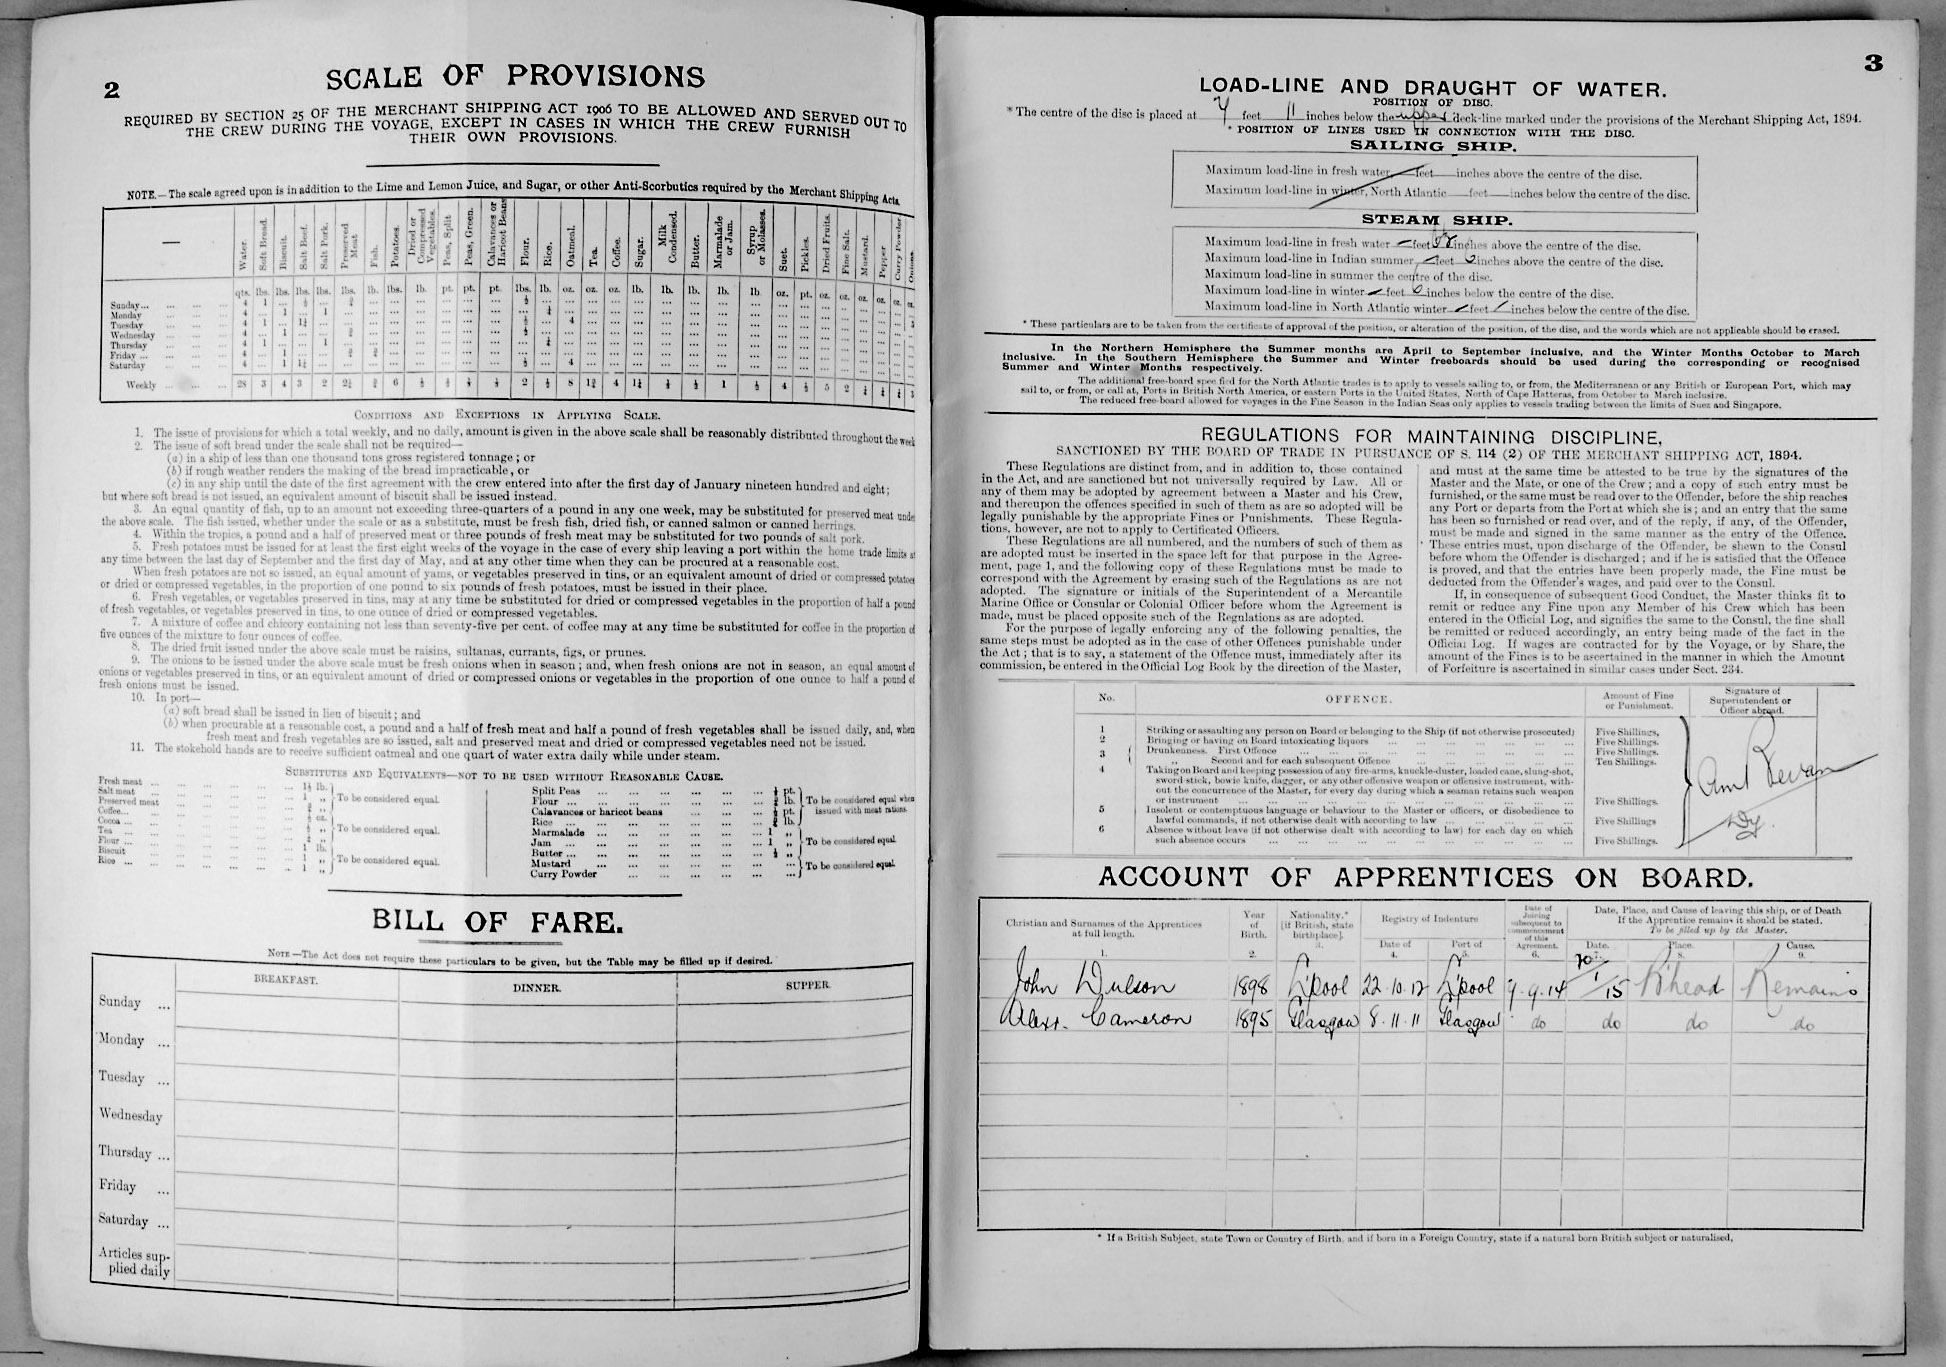 2
SCALE OF PROVISIONS
REQUIRED BY SECTION 25 OF THE MERCHANT SHIPPING ACT 1906 TO BE ALLOWED AND SERVED OUT TO
THE CREW DURING THE VOYAGE, EXCEPT IN CASES IN WHICH THE CREW FURNISH
THEIR OWN PROVISIONS.
NOTE.—The scale agreed upon is in addition to the Lime and Lemon Juice, and Sugar, or other Anti-Scorbutics required by the Merchant Shipping Acts.
— Water. Soft Bread. Biscuit. Salt Beef. Salt Pork. Preserved Meat Fish. Potatoes. Dried or Compressed Vegetables. Peas, Split Peas, Green. Calavances or Haricot Beans Flour. Rice. Oatmeal. Tea. Coffee. Sugar. Milk Condensed. Butter. Marmalade or Jam. Syrup or Molasses. Suet. Pickles. Dried Fruits. Fine Salt. Mustard. Pepper Curry Powder. Onions.
qts. lbs. lbs. lbs. lbs. lbs. lb. lbs. lb. pt. pt. pt. lbs. lb. oz. oz. oz. lb. lb. lb. lb. lb. oz. pt. oz. oz. oz. oz. oz. oz.
Sunday... 4 1
Monday 4 1 1
Tuesday 4 1 1½ 4
Wednesday 4 1
Thursday 4 1 1
Friday ... 4 1
Saturday 4 1 1½ 4
Weekly 28 3 4 3 2 2¼ ¾ 6 2 8 1¾ 4 1¼ 1 4 5 2
CONDITIONS AND EXCEPTIONS IN APPLYING SCALE.
1. The issue of provisions for which a total weekly, and no daily, amount is given in the above scale shall be reasonably distributed throughout the week
2. The issue of soft bread under the scale shall not be required—
(a) in a ship of less than one thousand tons gross registered tonnage; or
(b) if rough weather renders the making of the bread impracticable, or
(c) in any ship until the date of the first agreement with the crew entered into after the first day of January nineteen hundred and eight;
but where soft bread is not issued, an equivalent amount of biscuit shall be issued instead.
3. An equal quantity of fish, up to an amount not exceeding three-quarters of a pound in any one week, may be substituted for preserved meat unde
the above scale. The fish issued, whether under the scale or as a substitute, must be fresh fish, dried fish, or canned salmon or canned herrings.
4. Within the tropics, a pound and a half of preserved meat or three pounds of fresh meat may be substituted for two pounds of salt pork.
5. Fresh potatoes must be issued for at least the first eight weeks of the voyage in the case of every ship leaving a port within the home trade limits at
any time between the last day of September and the first day of May, and at any other time when they can be procured at a reasonable cost.
When fresh potatoes are not so issued, an equal amount of yams, or vegetables preserved in tins, or an equivalent amount of dried or compressed potatoes
or dried or compressed vegetables, in the proportion of one pound to six pounds of fresh potatoes, must be issued in their place.
6. Fresh vegetables, or vegetables preserved in tins, may at any time be substituted for dried or compressed vegetables in the proportion of half a pound
of fresh vegetables, or vegetables preserved in tins, to one ounce of dried or compressed vegetables.
7. A mixture of coffee and chicory containing not less than seventy-five per cent. of coffee may at any time be substituted for coffee in the proportion of
five ounces of the mixture to four ounces of coffee.
8. The dried fruit issued under the above scale must be raisins, sultanas, currants, figs, or prunes.
9. The onions to be issued under the above scale must be fresh onions when in season; and, when fresh onions are not in season, an equal amount of
onions or vegetables preserved in tins, or an equivalent amount of dried or compressed onions or vegetables in the proportion of one ounce to half a pound of
fresh onions must be issued.
10. In port—
(a) soft bread shall be issued in lieu of biscuit; and
(b) when procurable at a reasonable cost, a pound and a half of fresh meat and half a pound of fresh vegetables shall be issued daily, and, when
fresh meat and fresh vegetables are so issued, salt and preserved meat and dried or compressed vegetables need not be issued.
11. The stokehold hands are to receive sufficient oatmeal and one quart of water extra daily while under steam.
SUBSTITUTES AND EQUIVALENTS—NOT TO BE USED WITHOUT REASONABLE CAUSE.
Fresh meat ... 1½ lb.
Salt meat ... 1 „
Preserved meat ... ¾ „
To be considered equal.
Coffee... ½ oz.
Cocoa ... „
Tea ... ¼ „
To be considered equal.
Flour ... 1 lb.
Biscuit 1 „
Rice ... 1 „
To be considered equal.
Split Peas pt.
Flour ... lb.
Calavances or haricot beans pt.
Rice ... lb.
To be considered equal when
issued with meat rations.
Marmalade 1 „
Jam 1 „
Butter ... ½ „
To be considered equal.
Mustard
Curry Powder
To be considered equal.
BILL OF FARE.
NOTE—The Act does not require these particulars to be given, but the Table may be filled up if desired.
BREAKFAST. DINNER. SUPPER.
Sunday ...
Monday ...
Tuesday ...
Wednesday
Thursday ...
Friday ...
Saturday ...
Articles sup-
plied daily
3
LOAD-LINE AND DRAUGHT OF WATER.
POSITION OF DISC.
* The centre of the disc is placed at 7 feet 11 inches below the upper deck-line marked under the provisions of the Merchant Shipping Act, 1894.
* POSITION OF LINES USED IN CONNECTION WITH THE DISC.
SAILING SHIP.
Maximum load-line in fresh water feet inches above the centre of the disc.
Maximum load-line in winter, North Atlantic feet inches below the centre of the disc.
STEAM SHIP.
Maximum load-line in fresh water — feet inches above the centre of the disc.
Maximum load-line in Indian summer — feet 6 inches above the centre of the disc.
Maximum load-line in summer the centre of the disc.
Maximum load-line in winter — feet 6 inches below the centre of the disc.
Maximum load-line in North Atlantic winter — feet inches below the centre of the disc.
* These particulars are to be taken from the certificate of approval of the position, or alteration of the position, of the disc, and the words which are not applicable should be erased.
In the Northern Hemisphere the Summer months are April to September inclusive, and the Winter Months October to March
inclusive. In the Southern Hemisphere the Summer and Winter freeboards should be used during the corresponding or recognised
Summer and Winter Months respectively.
The additional free-board specified for the North Atlantic trades is to apply to vessels sailing to, or from, the Mediterranean or any British or European Port, which may
sail to, or from, or call at, Ports in British North America, or eastern Ports in the United States, North of Cape Hatteras, from October to March inclusive.
The reduced free-board allowed for voyages in the Fine Season in the Indian Seas only applies to vessels trading between the limits of Suez and Singapore.
REGULATIONS FOR MAINTAINING DISCIPLINE,
SANCTIONED BY THE BOARD OF TRADE IN PURSUANCE OF S. 114 (2) OF THE MERCHANT SHIPPING ACT, 1894.
These Regulations are distinct from, and in addition to, those contained
in the Act, and are sanctioned but not universally required by Law. All or
any of them may be adopted by agreement between a Master and his Crew,
and thereupon the offences specified in such of them as are so adopted will be
legally punishable by the appropriate Fines or Punishments. These Regula-
tions, however, are not to apply to Certificated Officers.
These Regulations are all numbered, and the numbers of such of them as
are adopted must be inserted in the space left for that purpose in the Agree-
ment, page 1, and the following copy of these Regulations must be made to
correspond with the Agreement by erasing such of the Regulations as are not
adopted. The signature or initials of the Superintendent of a Mercantile
Marine Office or Consular or Colonial Officer before whom the Agreement is
made, must be placed opposite such of the Regulations as are adopted.
For the purpose of legally enforcing any of the following penalties, the
same steps must be adopted as in the case of other Offences punishable under
the Act; that is to say, a statement of the Offence must, immediately after its
commission, be entered in the Official Log Book by the direction of the Master,
and must at the same time be attested to be true by the signatures of the
Master and the Mate, or one of the Crew; and a copy of such entry must be
furnished, or the same must be read over to the Offender, before the ship reaches
any Port or departs from the Port at which she is; and an entry that the same
has been so furnished or read over, and of the reply, if any, of the Offender,
must be made and signed in the same manner as the entry of the Offence.
These entries must, upon discharge of the Offender, be shewn to the Consul
before whom the Offender is discharged; and if he is satisfied that the Offence
is proved, and that the entries have been properly made, the Fine must be
deducted from the Offender's wages, and paid over to the Consul.
If, in consequence of subsequent Good Conduct, the Master thinks fit to
remit or reduce any Fine upon any Member of his Crew which has been
entered in the Official Log, and signifies the same to the Consul, the fine shall
be remitted or reduced accordingly, an entry being made of the fact in the
Official Log. If wages are contracted for by the Voyage, or by Share, the
amount of the Fines is to be ascertained in the manner in which the Amount
of Forfeiture is ascertained in similar cases under Sect. 234.
No. OFFENCE. Amount of Fine or Punishment. Signature of Superintendent or Officer abroad.
1 Striking or assaulting any person on Board or belonging to the Ship (if not otherwise prosecuted) Five Shillings.
2 Bringing or having on Board intoxicating liquors Five Shillings.
3 Drunkenness. First Offence Five Shillings.
„ Second and for each subsequent Offence Ten Shillings.
4 Taking on Board and keeping possession of any fire-arms, knuckle-duster, loaded cane, slung-shot,
sword-stick, bowie knife, dagger, or any other offensive weapon or offensive instrument, with-
out the concurrence of the Master, for every day during which a seaman retains such weapon
or instrument Five Shillings.
5 Insolent or contemptuous language or behaviour to the Master or officers, or disobedience to
lawful commands, if not otherwise dealt with according to law Five Shillings
6 Absence without leave (if not otherwise dealt with according to law) for each day on which
such absence occurs Five Shillings.
Bevan
Dy.
ACCOUNT OF APPRENTICES ON BOARD.
Christian and Surnames of the Apprentices at full length. Year of Birth. Nationality.* [if British, state birthplace]. Registry of Indenture Date of Joining subsequent to commencement of this Agreement. Date, Place, and Cause of leaving this ship, or of Death
If the Apprentice remains it should be stated.
To be filled up by the Master.
Date of Port of Date. Place. Cause.
1. 2. 3. 4. 5. 6. 7. 8. 9.
John Wulson 1898 L'pool 22.10.12 L'pool 9.9.14 20/1/15 B'head Remains
Alexr. Cameron 1895 Glasgow 8.11.11 Glasgow do do do do
* If a British Subject, state Town or Country of Birth, and if born in a Foreign Country, state if a natural born British subject or naturalised,